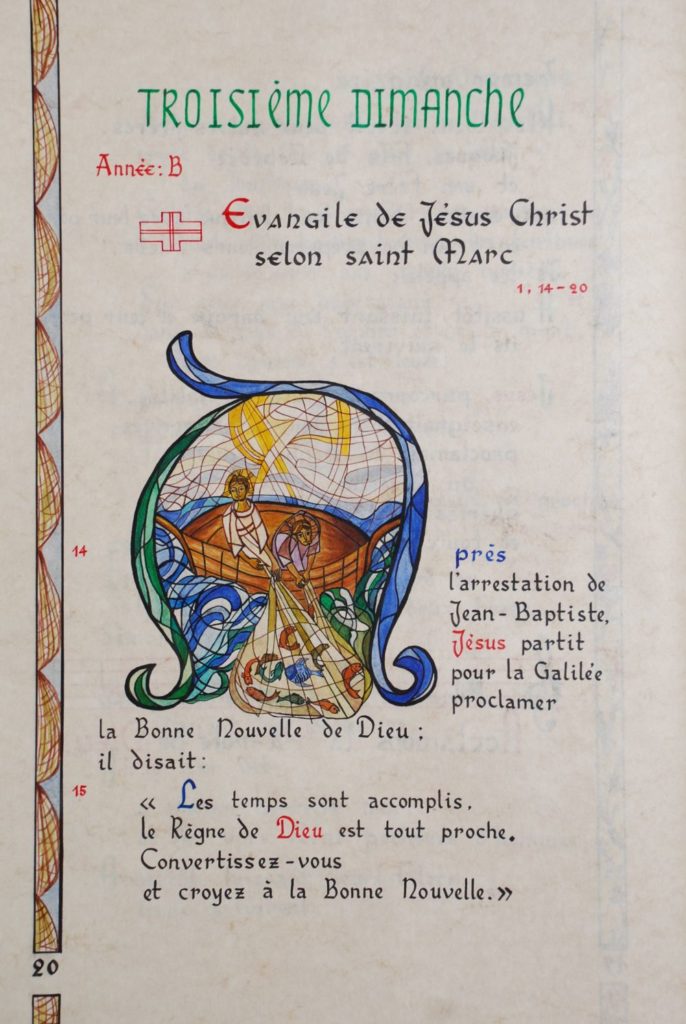 TROISIÈME DIMANCHE
Année: B
Evangile de Jésus Christ
selon saint Marc
1, 14-20
14
près
l'arrestation de
Jean-Baptiste,
Jésus partit
pour la Galilée
proclamer
la Bonne Nouvelle de Dieu ;
il disait :
15
« Les temps sont accomplis,
le Règne de Dieu est tout proche.
Convertissez-vous
et croyez à la Bonne Nouvelle. »
20